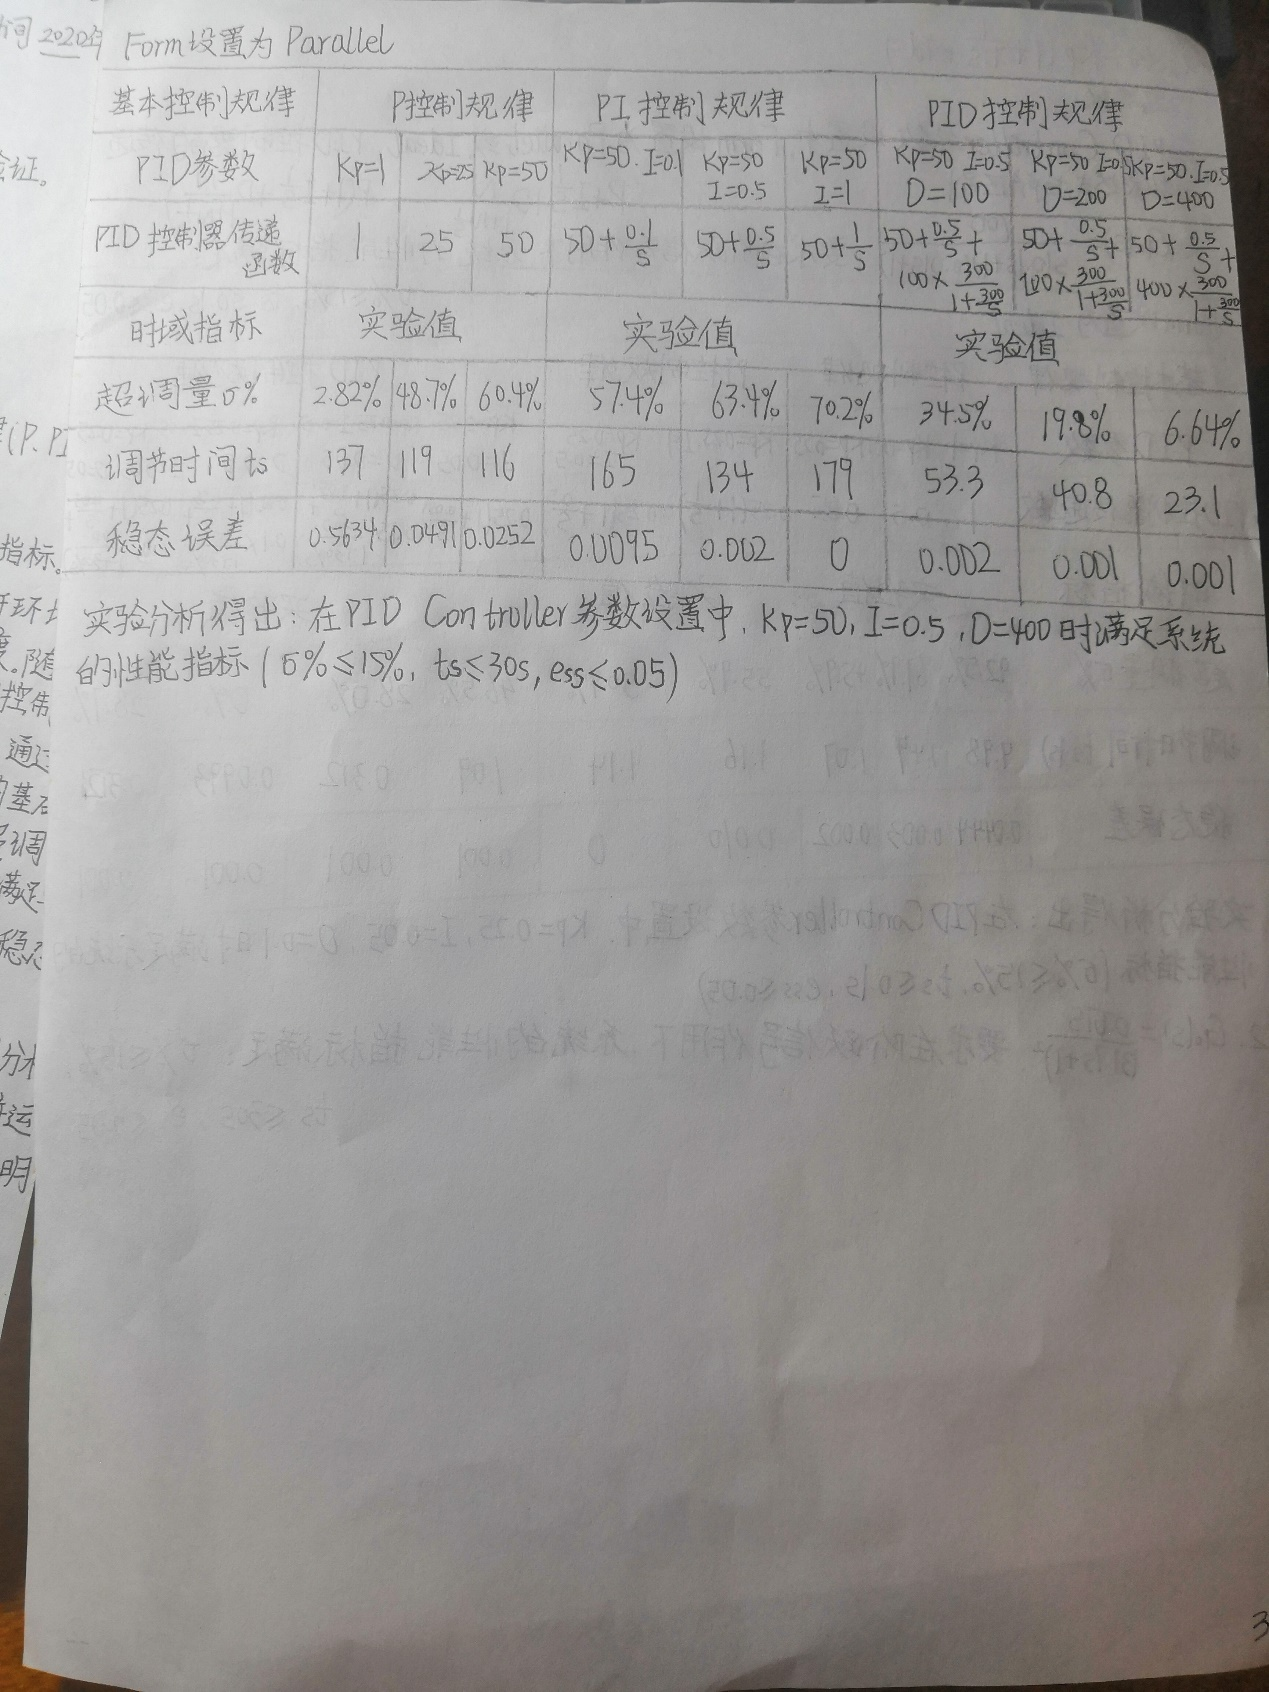 间 2020年
Form设置为 Parallel
基本控制规律 P控制规律 PI控制规律 PID控制规律
PID参数 Kp=1 Kp=25 Kp=50 Kp=50. I=0.1 Kp=50 I=0.5 Kp=50 I=1 Kp=50 I=0.5 D=100 Kp=50 I=0.5 D=200 Kp=50. I=0.5 D=400
PID控制器传递函数 1 25 50 50+0.1/S 50+0.5/S 50+1/S 50+0.5/S+100×300/(1+300/S) 50+0.5/S+200×300/(1+300/S) 50+0.5/S+400×300/(1+300/S)
时域指标 实验值 实验值 实验值
超调量σ% 2.82% 48.7% 60.4% 57.4% 63.4% 70.2% 34.5% 19.8% 6.64%
调节时间ts 137 119 116 165 134 179 53.3 40.8 23.1
稳态误差 0.5634 0.0491 0.0252 0.0095 0.002 0 0.002 0.001 0.001
实验分析得出：在PID Controller参数设置中, Kp=50, I=0.5, D=400时满足系统
的性能指标(σ%≤15%, ts≤30s, ess≤0.05)
验证。
(P.PI
指标。
开环
随
控制
通过
的基
调
满足
稳态
分析
运
明
3